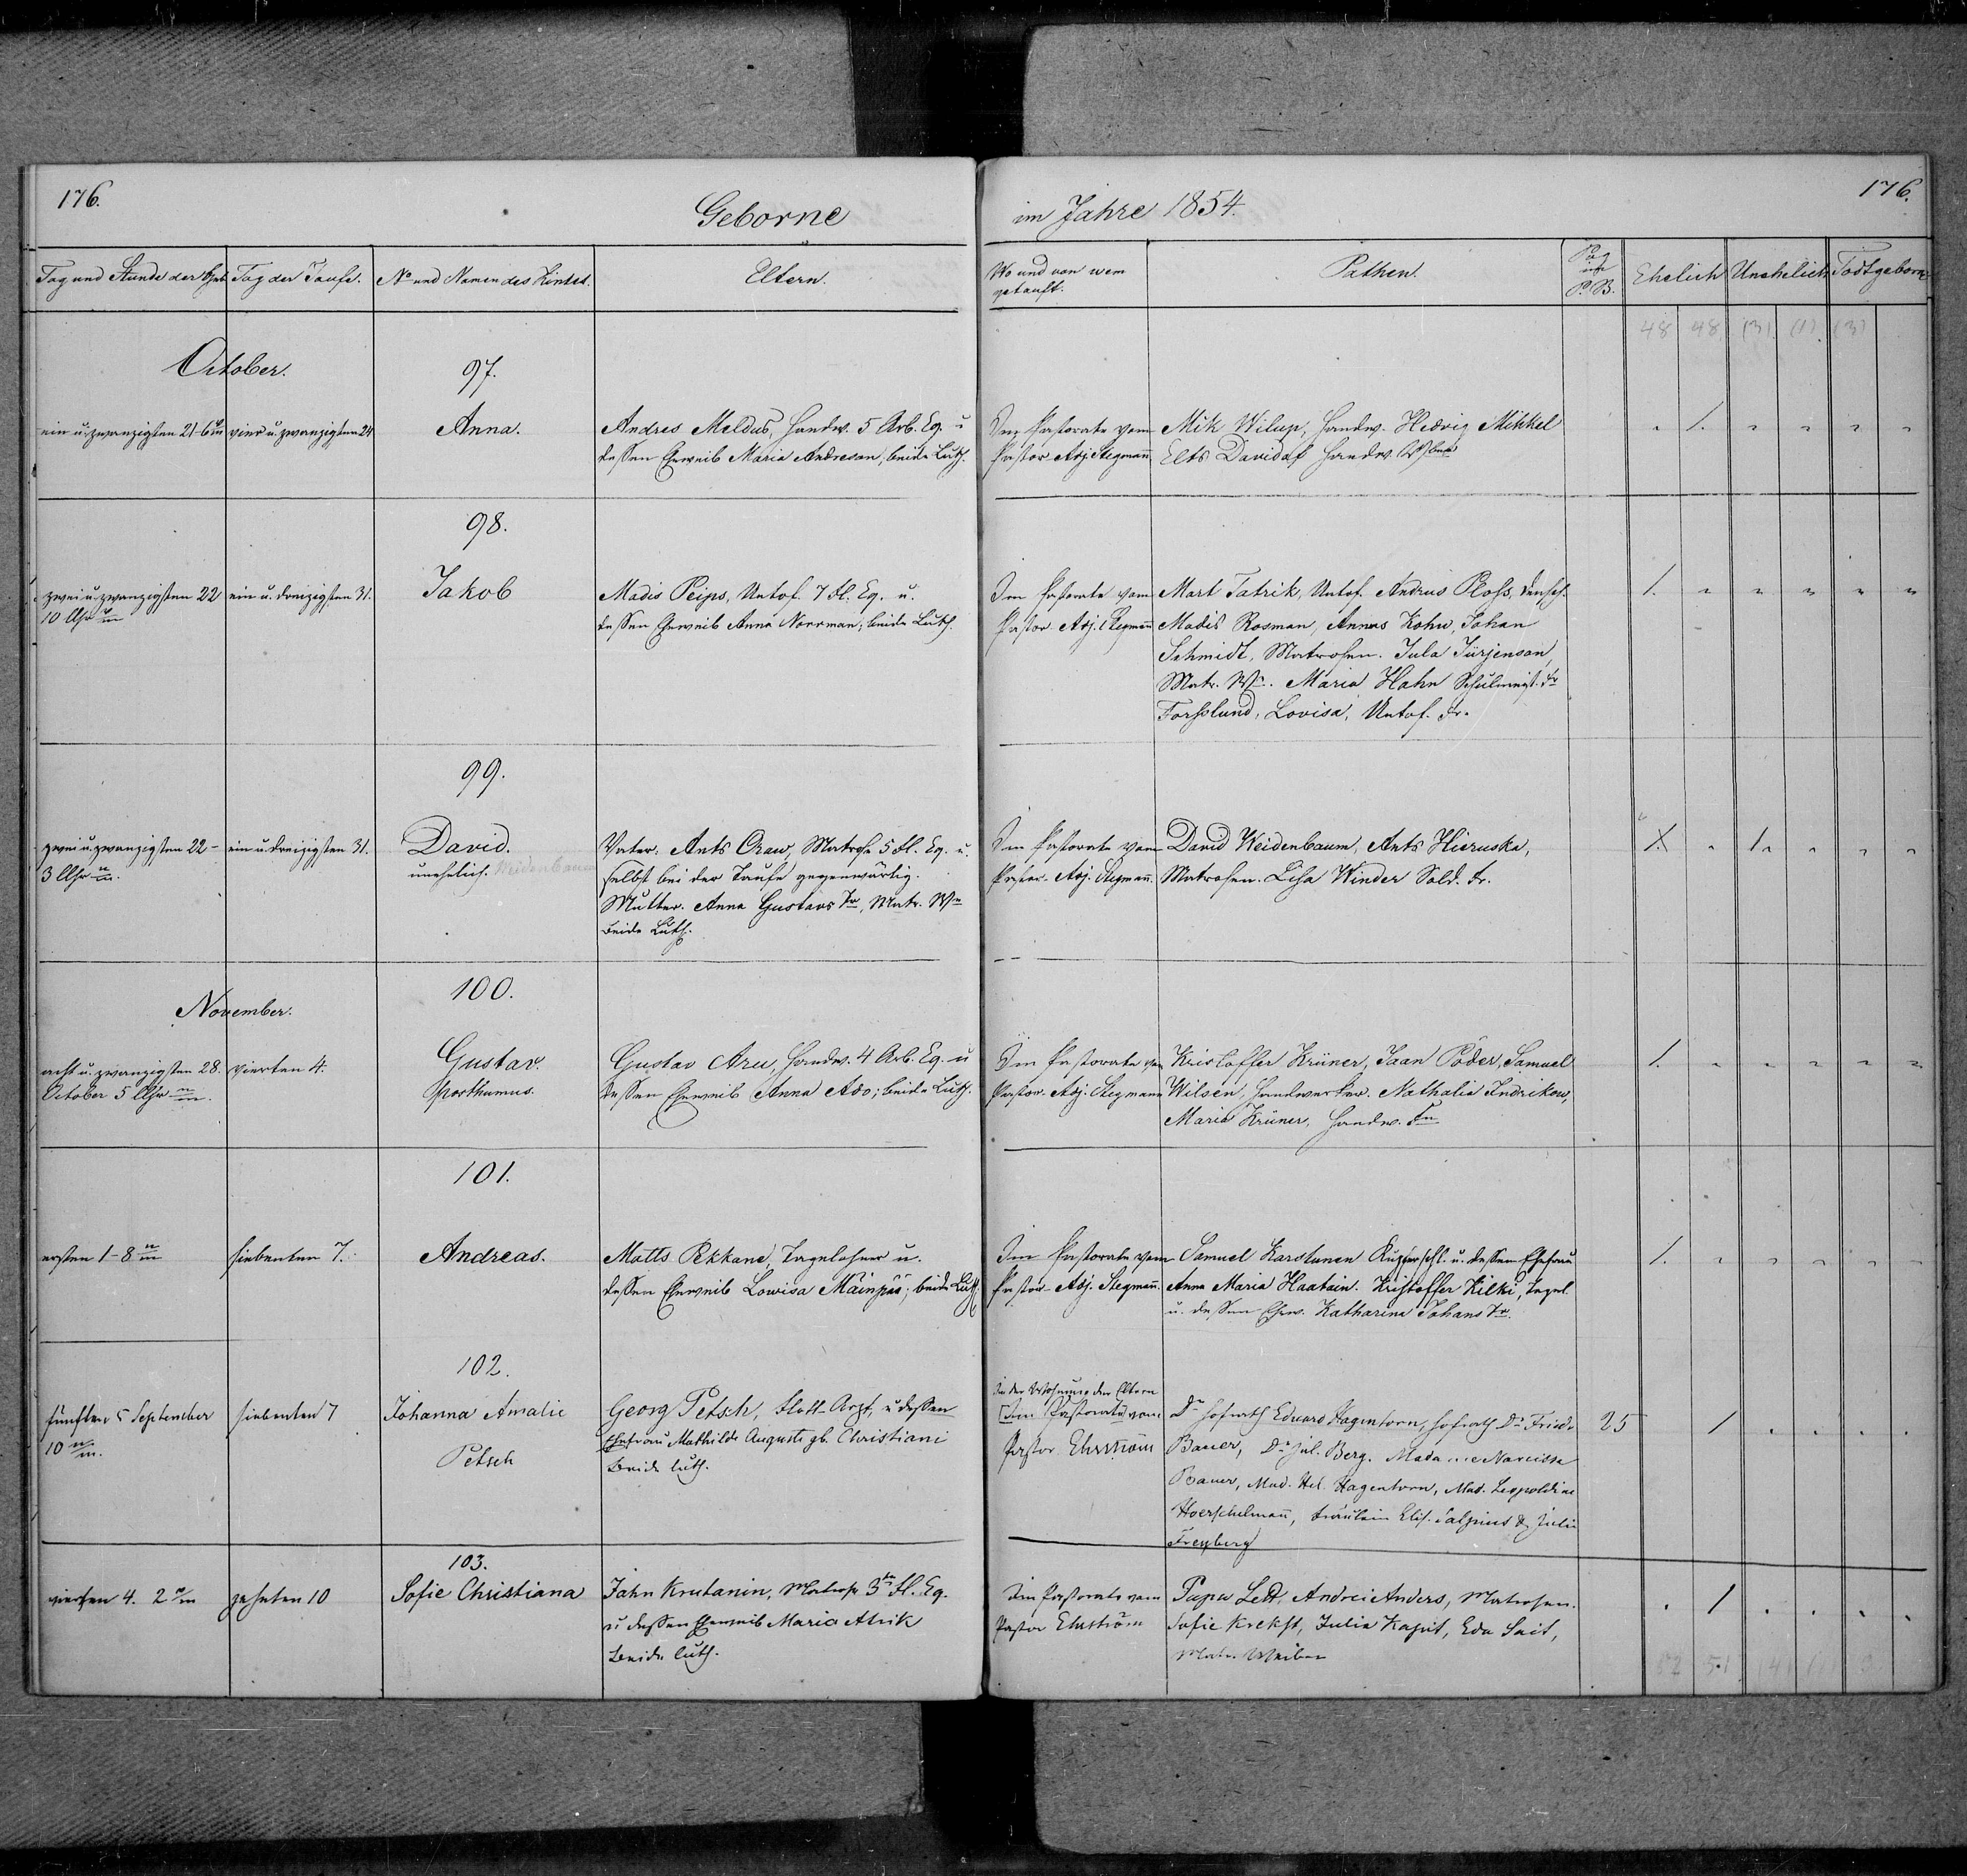 176.
Geborne
im Jahre 1854.
176.
Tag und Stunde der Geb. Tag der Taufe. No und Namen des Kindes. Eltern.
Wo und von wem getauft. Pathen. Pag im P.B. Ehelich Unehelich Todtgeborne
48 48 (3) (1) (3)
October.
97.
ein u. zwanzigsten 21 - 6 vier u. zwanzigsten 24
Anna.
Andres Meldus, Handw. 5 Arb. Eq. u
dessen Eheweib Maria Andreson; beide Luth.
Im Pastorate vom
Pastor Adj. Stegmann
Mik Wilup, Handw. Hedvig Mihkel
Elts Davidof Handw.
98.
zwei u. zwanzigsten 22 ein u. dreizigsten 31.
10 Uhr
Jakob
Madis Peips, Untof. 7 Fl. Eq. u.
dessen Eheweib Anna Norrman; beide Luth.
Im Pastorate vom
Pastor Adj. Stegmann
Mart Tatrik, Untof. Andrus Ploss, densel.
Madis Rosman, Annus Kohw, Johan
Schmidt, Matrosen. Jula Jürjenson,
Matr. Wn. Maria Hahn Schulmeist. Fr
Forsslund, Lovisa, Untof. Fr.
99.
zwei u. zwanzigsten 22 - ein u. dreizigsten 31.
3 Uhr
David.
unehelich. Weidenbaum
Vater: Ants Oraw, Matrose 5 Fl. Eq. u.
selbst bei der Taufe gegenwärtig.
Mutter. Anna Gustavs Tr, Matr. Wn
beide Luth.
Im Pastorate vom
Pastor Adj. Stegmann.
David Weidenbaum, Ants Hieruska,
Matrosen. Lisa Winder Sold. Fr.
November.
100.
acht u. zwanzigsten 28. vierten 4.
October 5 Uhr
Gustav.
Posthumus.
Gustav Aru, Handw. 4 Arb. Eq. u
dessen Eheweib Anna Ado; beide Luth.
Im Pastorate von
Pastor Adj. Stegmann
Kristoffer Krüner, Jaan Pöder, Samuel
Wilsen, Handwerker. Nathalia Indrikow,
Maria Krüner, Handw. Fn
101.
ersten 1 - 8
siebenten 7.
Andreas.
Matts Pekkane, Tagelohner u.
dessen Eheweib Lowisa Mäinpää; beide Luth
Im Pastorate vom
Pastor Adj. Stegmann.
Samuel Karstunen u. dessen Ehefrau
Anna Maria Haatain. Kristoffer Kilki, Tagel.
u. dessen Ehew. Katharina Johans Tr.
102.
fünften 5 September
10
siebenten 7
Johanna Amalie
Petsch
Georg Petsch, Flott-Arzt, u dessen
Ehefrau Mathilde Auguste gb. Christiani
beide luth.
In der Wohnung der Eltern
Im Pastorate vom
Pastor Ehrström
Dr Hofrath Eduard Hagentorn, Hofrath Dr Friedr
Bauer, Dr Jul. Berg. Madame Narcisse
Bauer, Mad. Hel. Hagentorn, Mad. Leopoldine
Hoerschelmann, Fräulein Elis. Salpius & Julie
Freyberg
25
103.
vierten 4. 2
zehnten 10
Sofie Christiana
Jahn Krutanin, Matrose 3ten Fl. Eq.
u dessen Eheweib Maria Atrik
beide luth.
Im Pastorate vom
Pastor Ehrström
Papu Lett, Andrei Anders, Matrosen.
Sofie Krekst, Julia Kaput, Edu Sait,
Matr. Weiber
52 51 (4) (1) 3